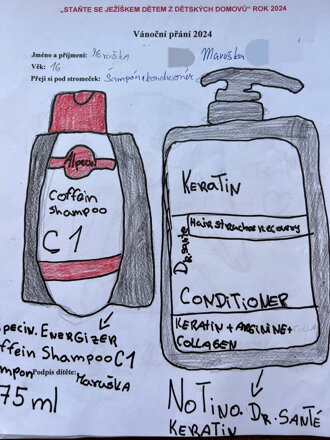 „STAŇTE SE JEŽÍŠKEM DĚTEM Z DĚTSKÝCH DOMOVŮ“ ROK 2024
Vánoční přání 2024
Jméno a příjmení: Maruška Maruška
Věk: 16
Přeji si pod stromeček: Šampón+kondicionér
Alpecin
Coffein
shampoo
C1
KERATIN
Hair structure recovery
DR. Santé
CONDITIONER
KERATIN+ARGININE+
COLLAGEN
ENERGIZER
Shampoo C1
Podpis dítěte: Maruška
75 ml
NOTINO. DR. SANTÉ
KERATIN